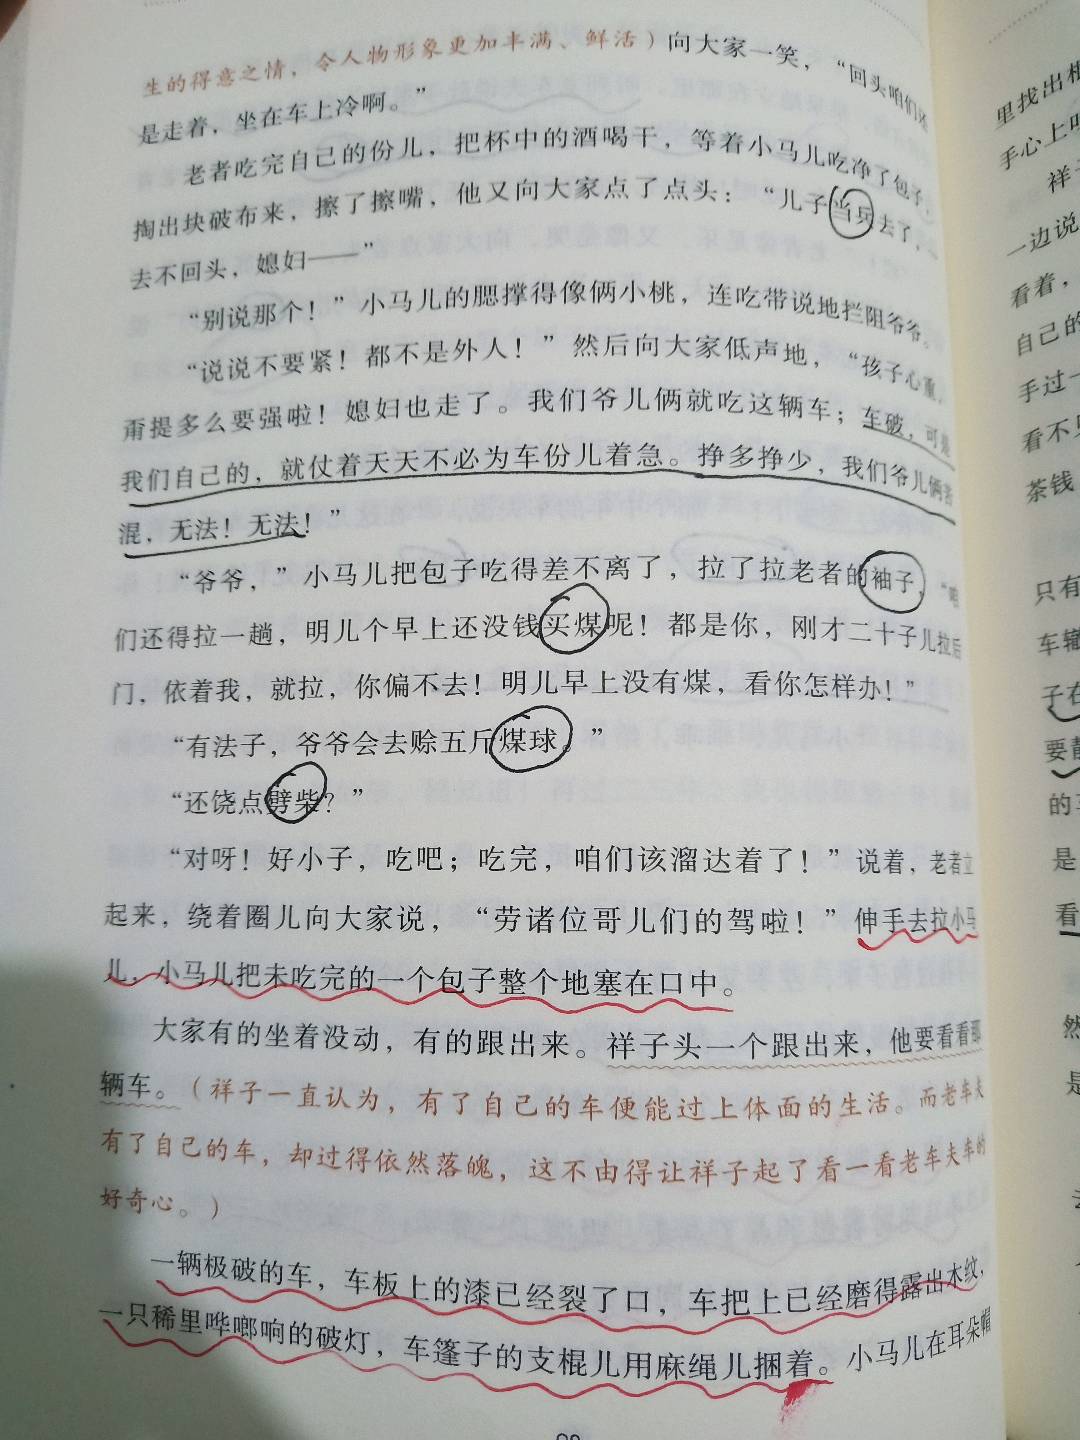 生的得意之情，令人物形象更加丰满、鲜活）向大家一笑，“回头咱们还
是走着，坐在车上冷啊。”
老者吃完自己的份儿，把杯中的酒喝干，等着小马儿吃净了包子，
掏出块破布来，擦了擦嘴，他又向大家点了点头：“儿子当兵去了，一
去不回头，媳妇——”
“别说那个！”小马儿的腮撑得像俩小桃，连吃带说地拦阻爷爷。
“说说不要紧！都不是外人！”然后向大家低声地，“孩子心重，
甭提多么要强啦！媳妇也走了。我们爷儿俩就吃这辆车；车破，可是
我们自己的，就仗着天天不必为车份儿着急。挣多挣少，我们爷儿俩苦
混，无法！无法！”
“爷爷，”小马儿把包子吃得差不离了，拉了拉老者的袖子，“咱
们还得拉一趟，明儿个早上还没钱买煤呢！都是你，刚才二十子儿拉后
门，依着我，就拉，你偏不去！明儿早上没有煤，看你怎样办！”
“有法子，爷爷会去赊五斤煤球。”
“还饶点劈柴？”
“对呀！好小子，吃吧；吃完，咱们该溜达着了！”说着，老者立
起来，绕着圈儿向大家说，“劳诸位哥儿们的驾啦！”伸手去拉小马
儿，小马儿把未吃完的一个包子整个地塞在口中。
大家有的坐着没动，有的跟出来。祥子头一个跟出来，他要看看那
辆车。（祥子一直认为，有了自己的车便能过上体面的生活。而老车夫
有了自己的车，却过得依然落魄，这不由得让祥子起了看一看老车夫车的
好奇心。）
一辆极破的车，车板上的漆已经裂了口，车把上已经磨得露出木纹，
一只稀里哗啷响的破灯，车篷子的支棍儿用麻绳儿捆着。小马儿在耳朵帽
里找出根
手心上
祥子
一边说
看着，
自己的
手过一
看不见
茶钱
只有
车辙
子在
要静
的
是
看
然
是